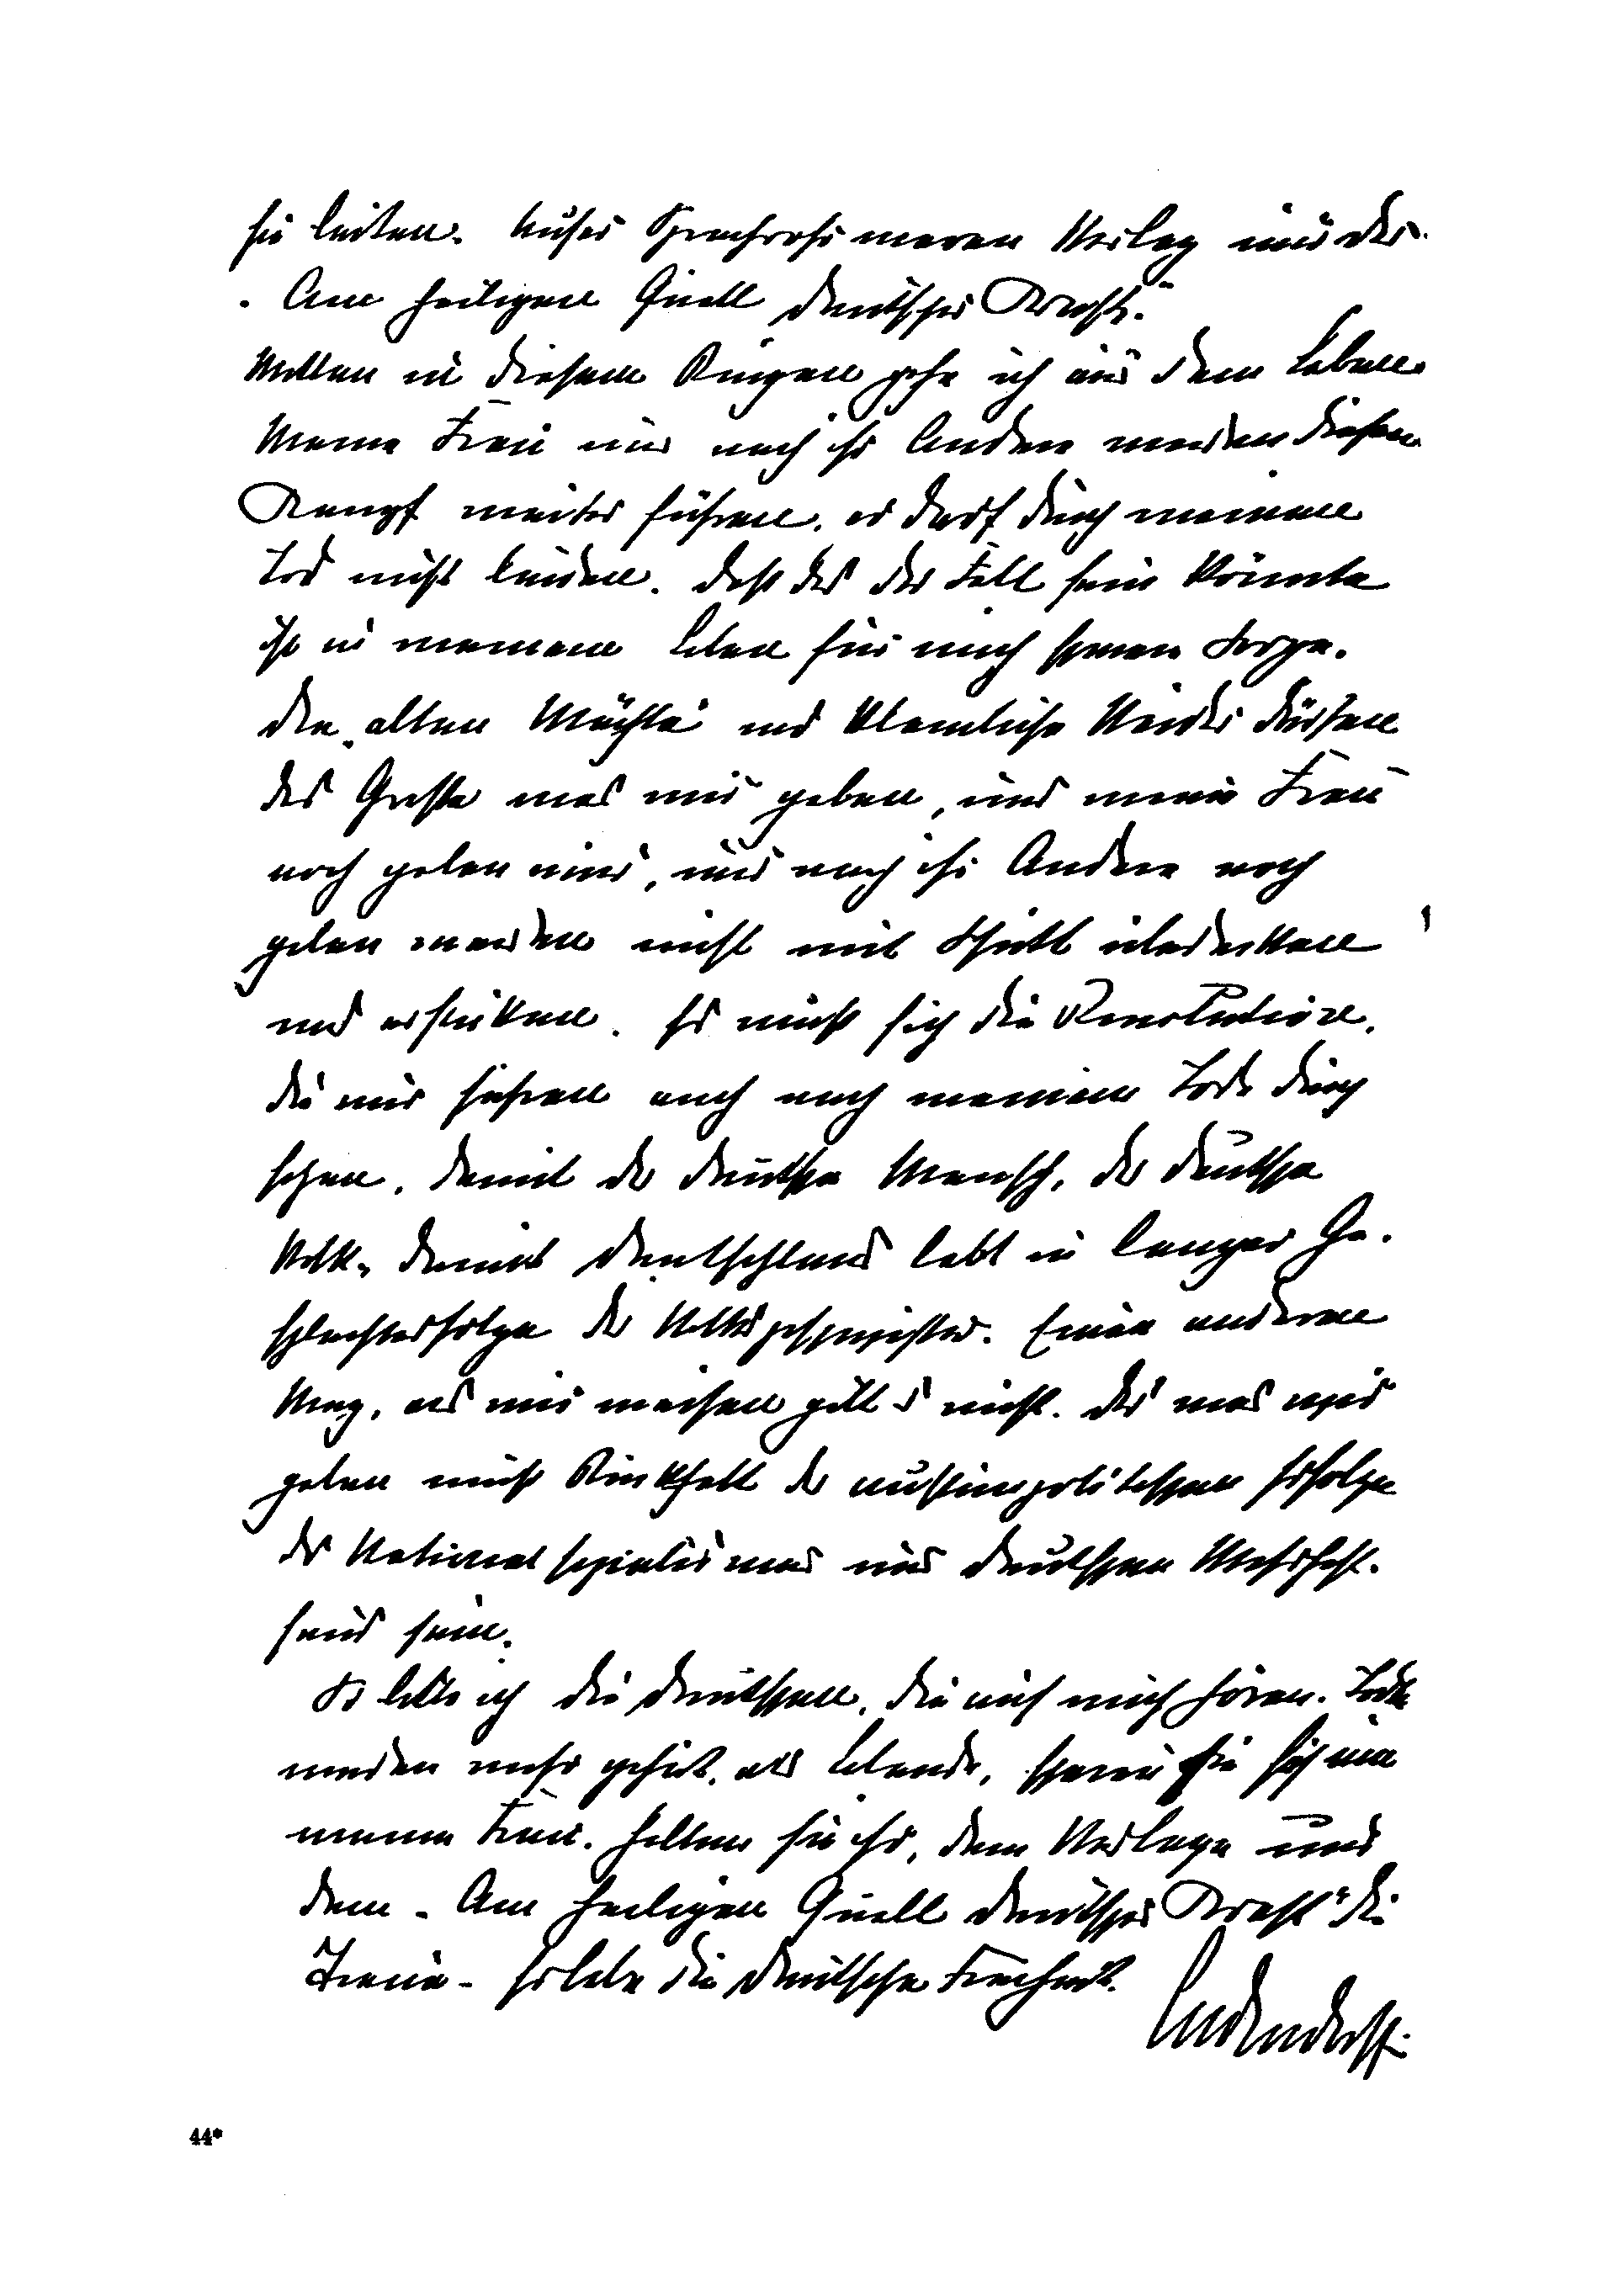 sie leiten. Unser Sprachrohr waren Verlag und der
„Am heiligen Quell Deutscher Kraft."
Mitten in diesem Ringen gehe ich aus dem Leben.
Meine Frau und nach ihr Andere werden diesen
Kampf weiter führen. er darf durch meinen
Tod nicht leiden. daß das der Fall sein könnte
ist in meinem Leben für mich schwere Sorge.
Die „alten Mächte" und kleinliche Neider dürfen
das Große was wir geben, und meine Frau
noch geben wird, und nach ihr Andere noch
geben werden nicht mit Schutt überdecken
und ersticken. Es muß sich die Revolution,
die wir führen auch nach meinem Tode durch
setzen, damit der deutsche Mensch, das deutsche
Volk, damit Deutschland lebt in langer Ge-
schlechterfolge der Volksgeschwister. Einen anderen
Weg, als wir weisen gibt es nicht. Das was wir
geben muß Rückhalt der außenpolitischen Erfolge
des Nationalsozialismus und deutschen Wehrhoh-
heit sein.
So bitte ich die Deutschen, die auf mich hören. Tote
werden mehr gehört, als Lebende, scharen Sie sich um
meine Frau. Halten sie ihr, dem Verlage und
dem „Am heiligen Quell Deutscher Kraft" die
Treue – Es lebe die Deutsche Freiheit.
Ludendorff.
44*